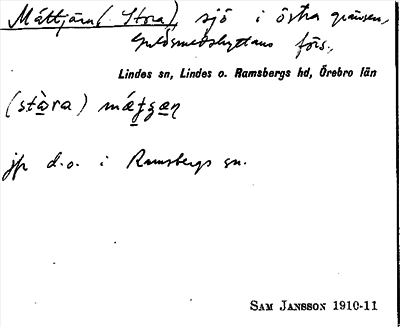 Måttjärn (Stora), sjö i östra gränsen,
Guldsmedshyttans förs.,
Lindes sn, Lindes o. Ramsbergs hd, Örebro län
(stὰ̱ra)
jfr d.o. i Ramsbergs sn.
SAM JANSSON 1910-11